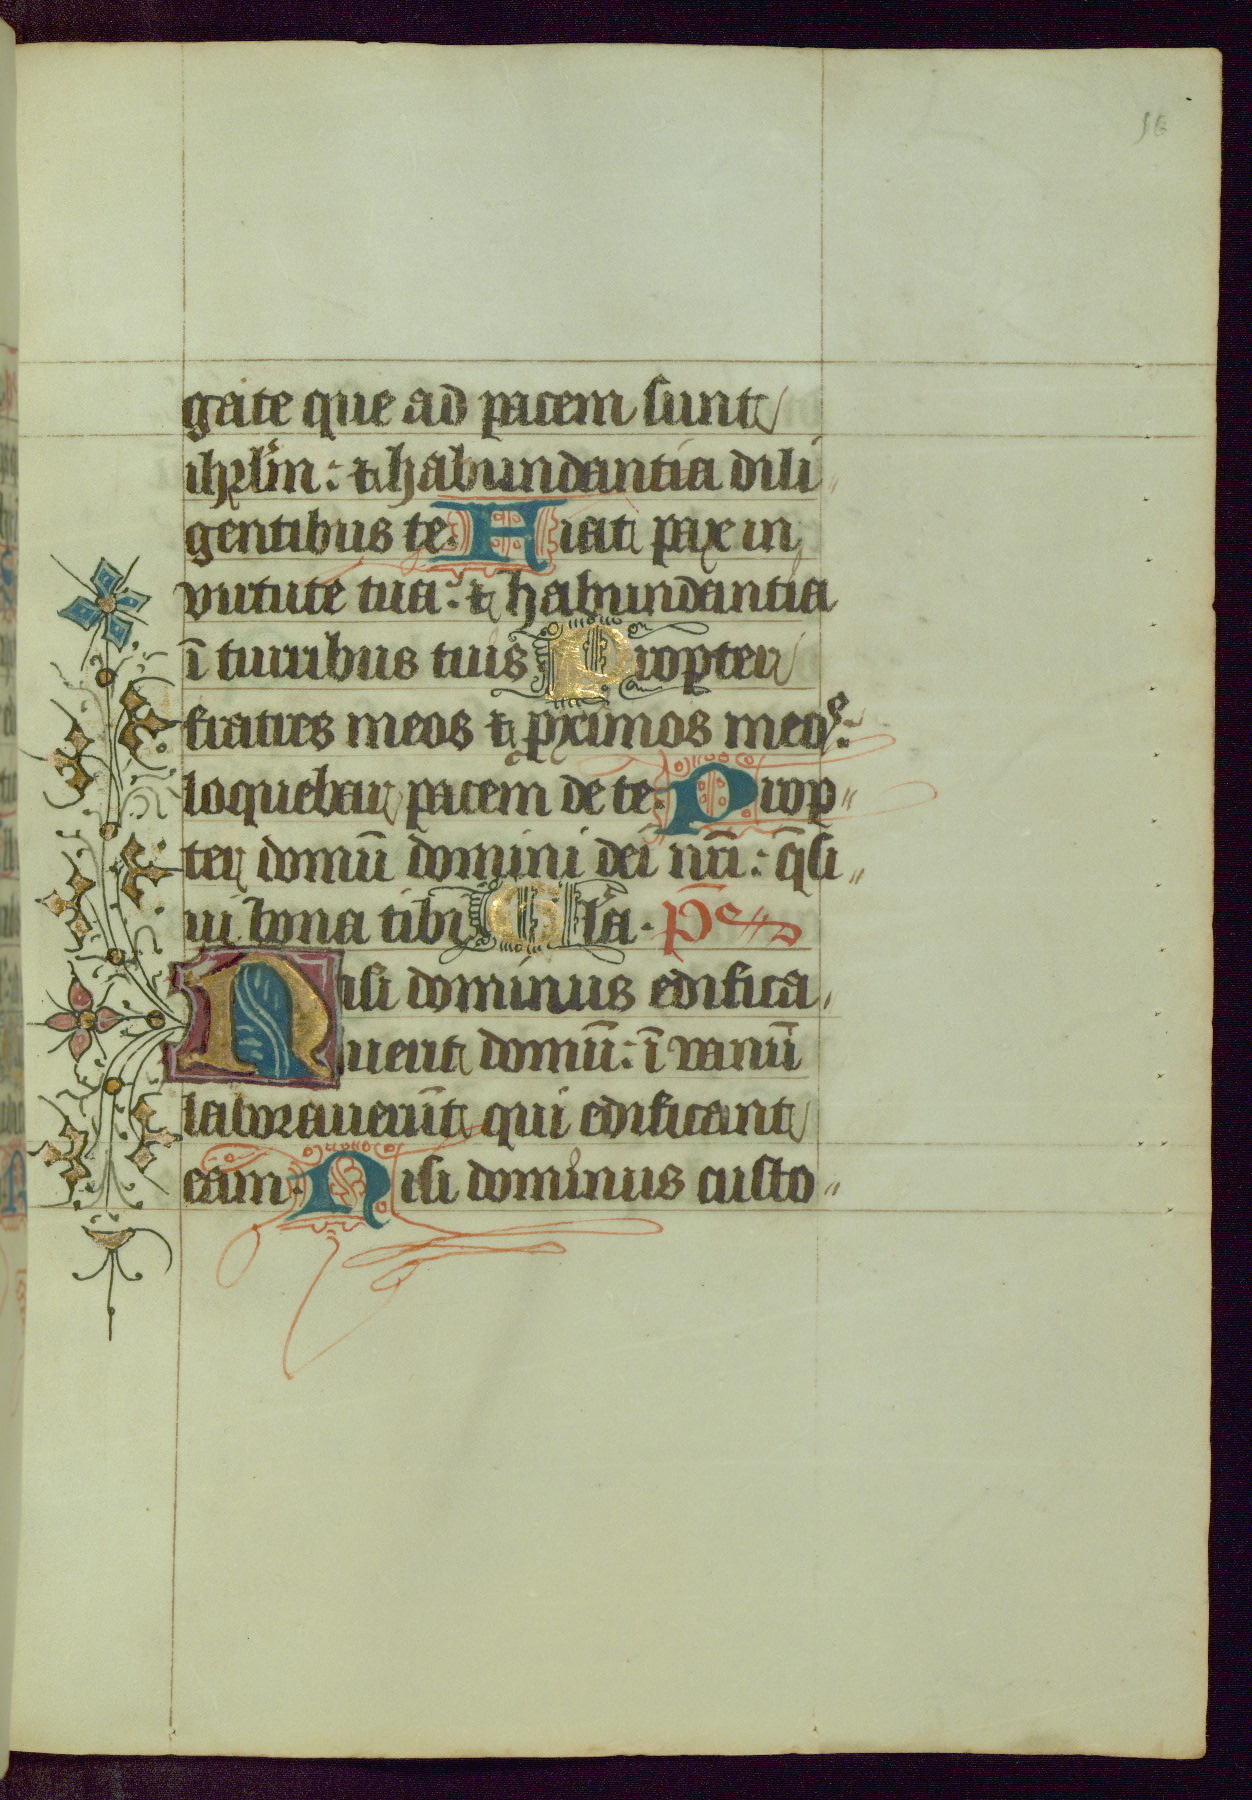 gate que ad pacem sunt
ihrl̄m: ⁊ habundantia dili
gentibus te. Fiat pax in
virtute tua: ⁊ habundantia
ī turribus tuis Propter
fratres meos ⁊ ꝓximos meos:
loquebar pacem de te. Prop
ter domū domini dei nr̄i: q̄si
ui bona tibi Gl̄a. Ps̄
Nisi dominus edifica
uerit domū: ī vanū
laborauerūt qui edificant
eam. Nisi dominus custo